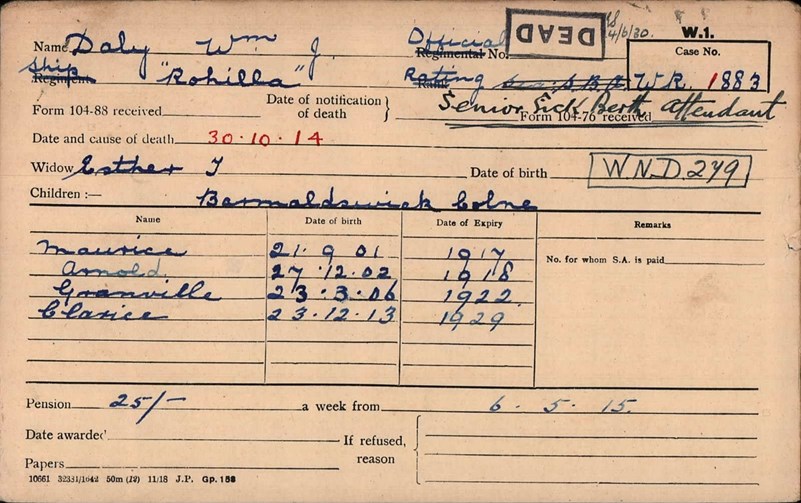 Name Daly Wm J Official Regimental No. DEAD 4/6/30. W.1.
Case No.
Ship Regiment "Rohilla" Rating Rank S.B.A. W.R. 1883
Form 104-88 received Date of notification of death } Senior Sick Berth Attendant
Form 104-76 received
Date and cause of death 30.10.14
Widow Esther J Date of birth W.N.D. 279
Children :— Barnoldswick Colne
Name Date of birth Date of Expiry Remarks
Maurice 21.9 01 1917
No. for whom S.A. is paid
Arnold. 27.12.02 1918
Granville 23.3.06 1922.
Clarice 23.12.13 1929
Pension 25/- a week from 6.5.15.
Date awarded If refused, reason
Papers
10661 32331/1642 50m (12) 11/18 J.P. Gp. 158